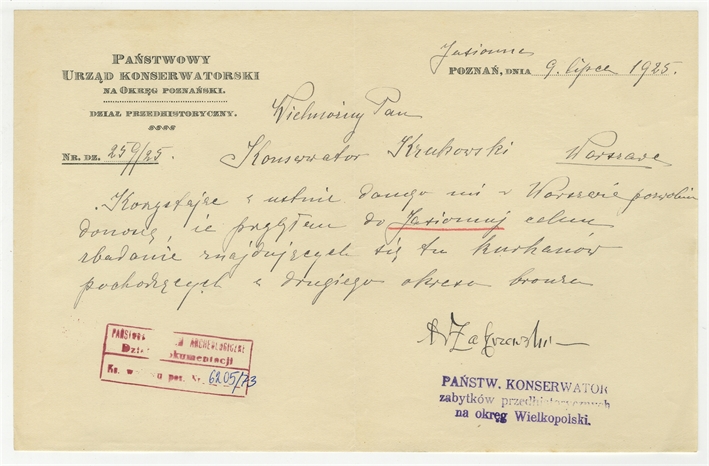 PAŃSTWOWY
URZĄD KONSERWATORSKI
NA OKRĘG POZNAŃSKI.
DZIAŁ PRZEDHISTORYCZNY.
NR. DZ. 259/25.
Jasionna
POZNAŃ, DNIA 9. lipca 1925.
Wielmożny Pan
Konserwator Krukowski Warszawa
Korzystając z ustnie danego mi w Warszawie pozwolenia
donoszę, że przybyłem do Jasionnej celem
zbadania znajdujących się tu kurhanów
pochodzących z drugiego okresu bronzu
Zakrzewski
PAŃSTWOWE ARCHEOLOGICZNE
Dział Dokumentacji
pot. Nr. 6205/73
PAŃSTW. KONSERWATOR
zabytków przedhistorycznych
na okręg Wielkopolski.